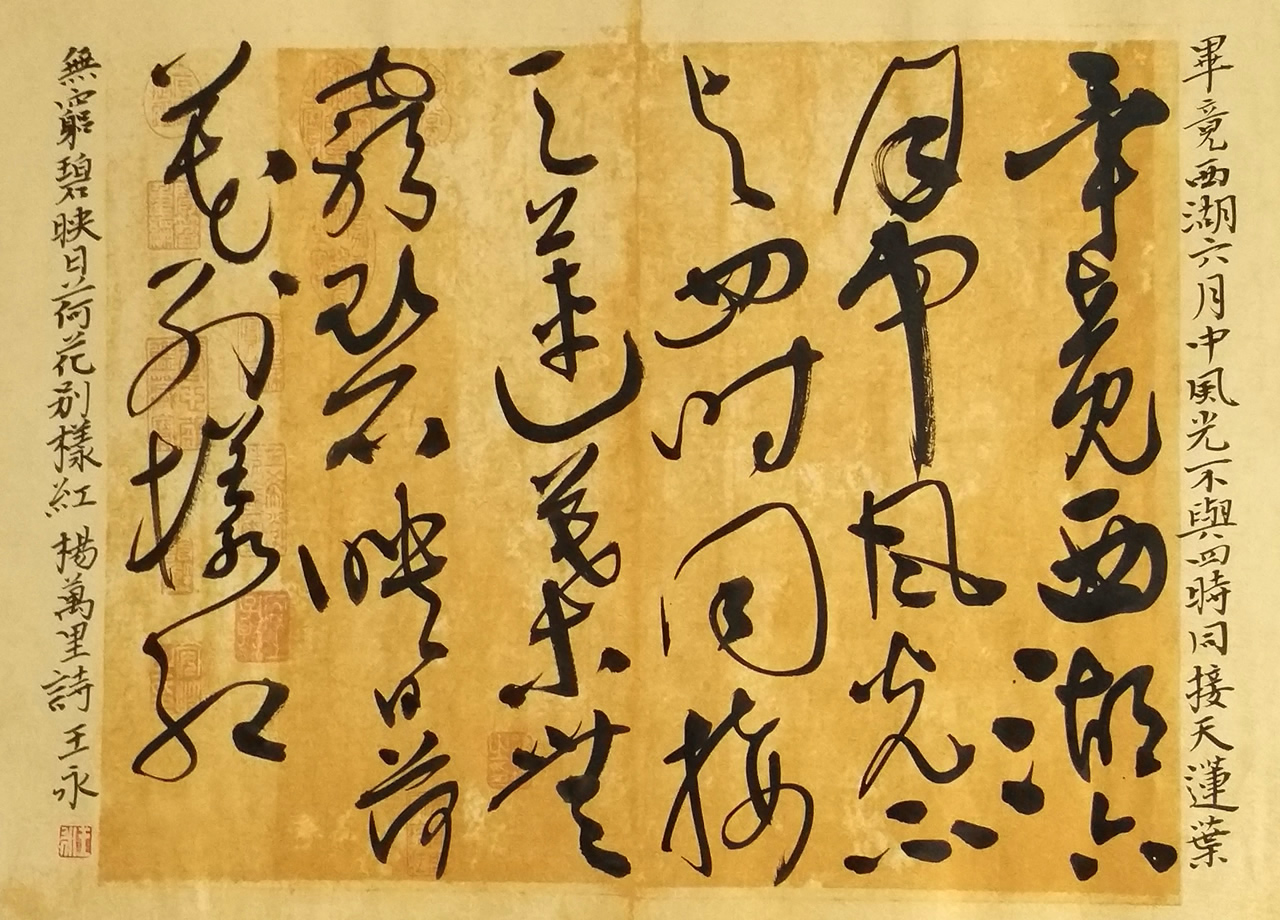 畢竟西湖六月中風光不與四時同接天蓮葉
畢竟西湖六
月中風光不
與四時同接
天蓮葉無
窮碧映日荷
花別樣紅
無窮碧映日荷花别樣紅 楊萬里詩 王永